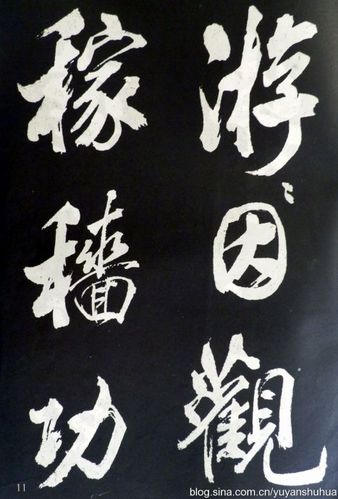 游因觀
稼穡功
11
blog.sina.com.cn/yuyanshuhua